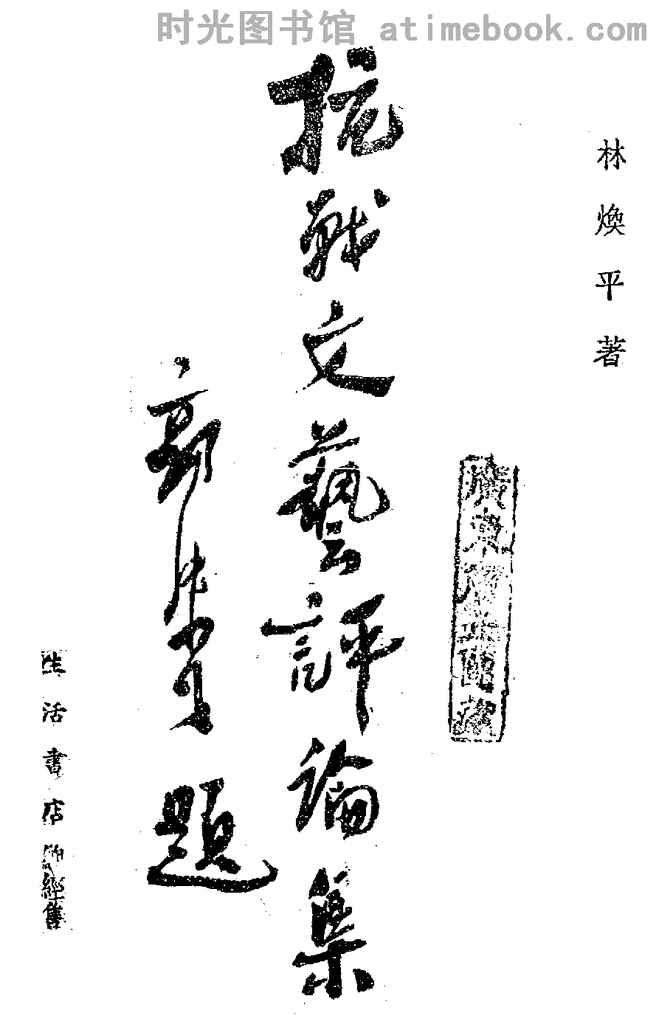 时光图书馆 atimebook.com
林煥平著
抗戰文藝評論集
郭沫若題
生活書店總經售